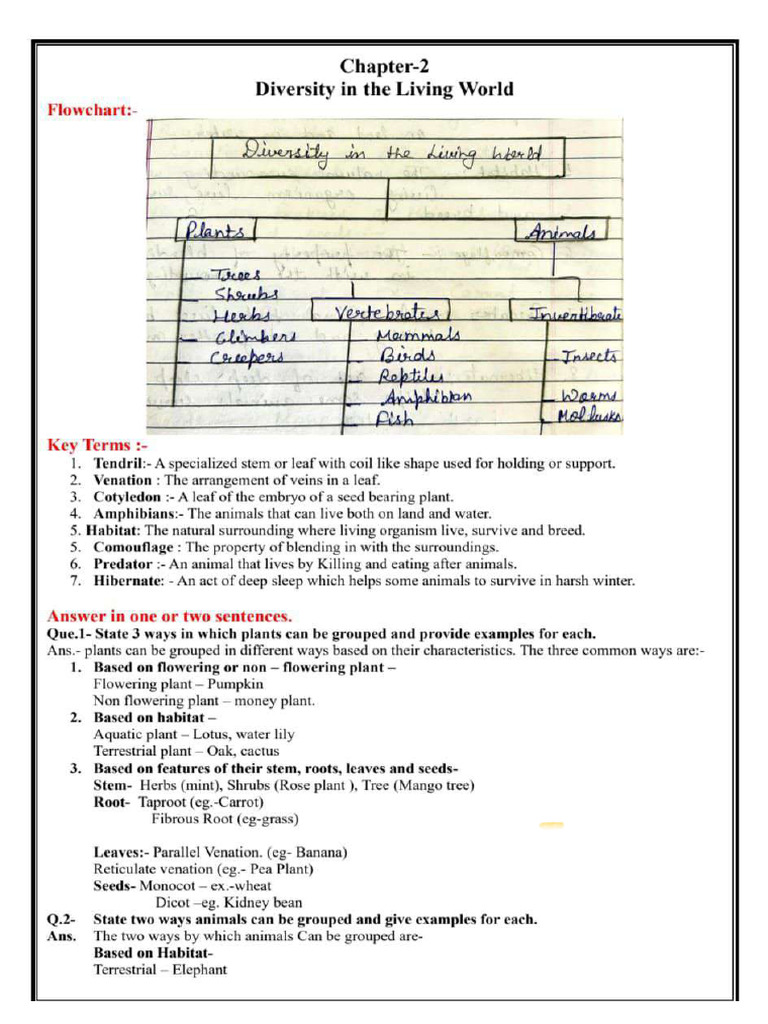 Chapter-2
Diversity in the Living World
Flowchart:-
Diversity in the Living World
Plants
Animals
Trees
Shrubs
Herbs
Climbers
Creepers
Vertebrates
Mammals
Birds
Reptiles
Amphibian
Fish
Invertibrate
Insects
Worms
Mollusks
Key Terms :-
1. Tendril:- A specialized stem or leaf with coil like shape used for holding or support.
2. Venation : The arrangement of veins in a leaf.
3. Cotyledon :- A leaf of the embryo of a seed bearing plant.
4. Amphibians:- The animals that can live both on land and water.
5. Habitat: The natural surrounding where living organism live, survive and breed.
5. Comouflage : The property of blending in with the surroundings.
6. Predator :- An animal that lives by Killing and eating after animals.
7. Hibernate: - An act of deep sleep which helps some animals to survive in harsh winter.
Answer in one or two sentences.
Que.1- State 3 ways in which plants can be grouped and provide examples for each.
Ans.- plants can be grouped in different ways based on their characteristics. The three common ways are:-
1. Based on flowering or non – flowering plant –
Flowering plant – Pumpkin
Non flowering plant – money plant.
2. Based on habitat –
Aquatic plant – Lotus, water lily
Terrestrial plant – Oak, cactus
3. Based on features of their stem, roots, leaves and seeds-
Stem- Herbs (mint), Shrubs (Rose plant ), Tree (Mango tree)
Root- Taproot (eg.-Carrot)
Fibrous Root (eg-grass)
Leaves:- Parallel Venation. (eg- Banana)
Reticulate venation (eg.- Pea Plant)
Seeds- Monocot – ex.-wheat
Dicot –eg. Kidney bean
Q.2- State two ways animals can be grouped and give examples for each.
Ans. The two ways by which animals Can be grouped are-
Based on Habitat-
Terrestrial – Elephant